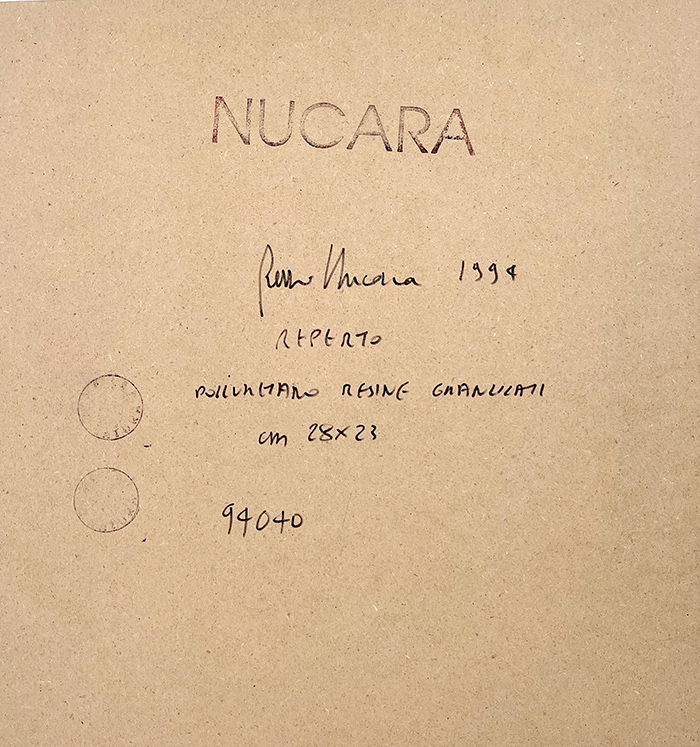 NUCARA
Nucara 1994
REPERTO
POLIURETANO RESINE GRANULATI
cm 28x23
94040